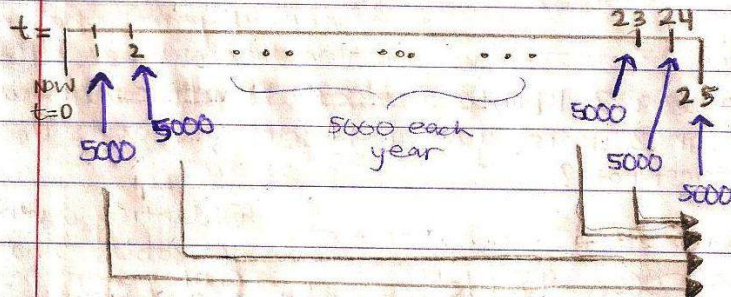 t=
23 24
1 2
... ... ...
NOW
t=0
25
5000
5000
5000 each
year
5000
5000
5000